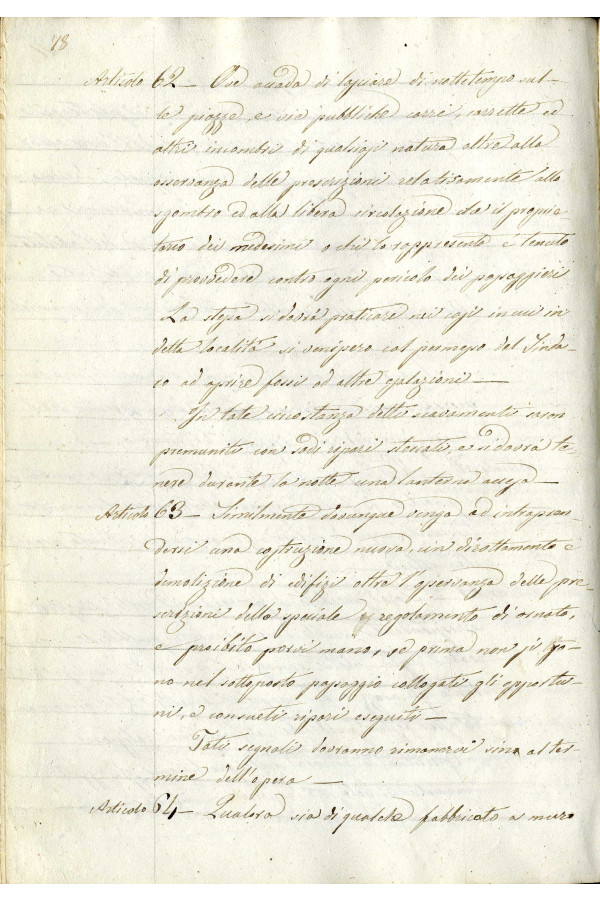 78
Articolo 62 — Ove accada di lasciare di notte tempo sul-
le piazze, e vie pubbliche carri, carrette ed
altri incombri di qualsiasi natura oltre alla
osservanza delle prescrizioni relativamente allo
sgombro ed alla libera circolazione che il proprie-
tario dei medesimi o chi lo rappresenta è tenuto
di provvedere contro ogni pericolo dei passaggieri
La stessa si dovrà praticare nei casi in cui in
detta località si venissero col permesso del Sinda-
co ad aprire fossi od altre
In tale circostanza detti scavamenti
premuniti con sodi ripari steccati, e si dovrà te-
nere durante la notte una lanterna accesa —
Articolo 63 — Similmente dovunque venga ad intrapren-
dersi una costruzione nuova, un dirottamento e
demolizione di edifizi oltre l'osservanza delle pre-
scrizioni dello speciale regolamento di ornato,
è proibito porvi mano, se prima non si sia-
no nel sottoposto passaggio collogati gli opportu-
ni, e consueti ripari eseguiti —
Tali segnali dovranno rimanervi sino al ter-
mine dell'opera —
Articolo 64 — Qualora sia di qualche fabbricato o muro